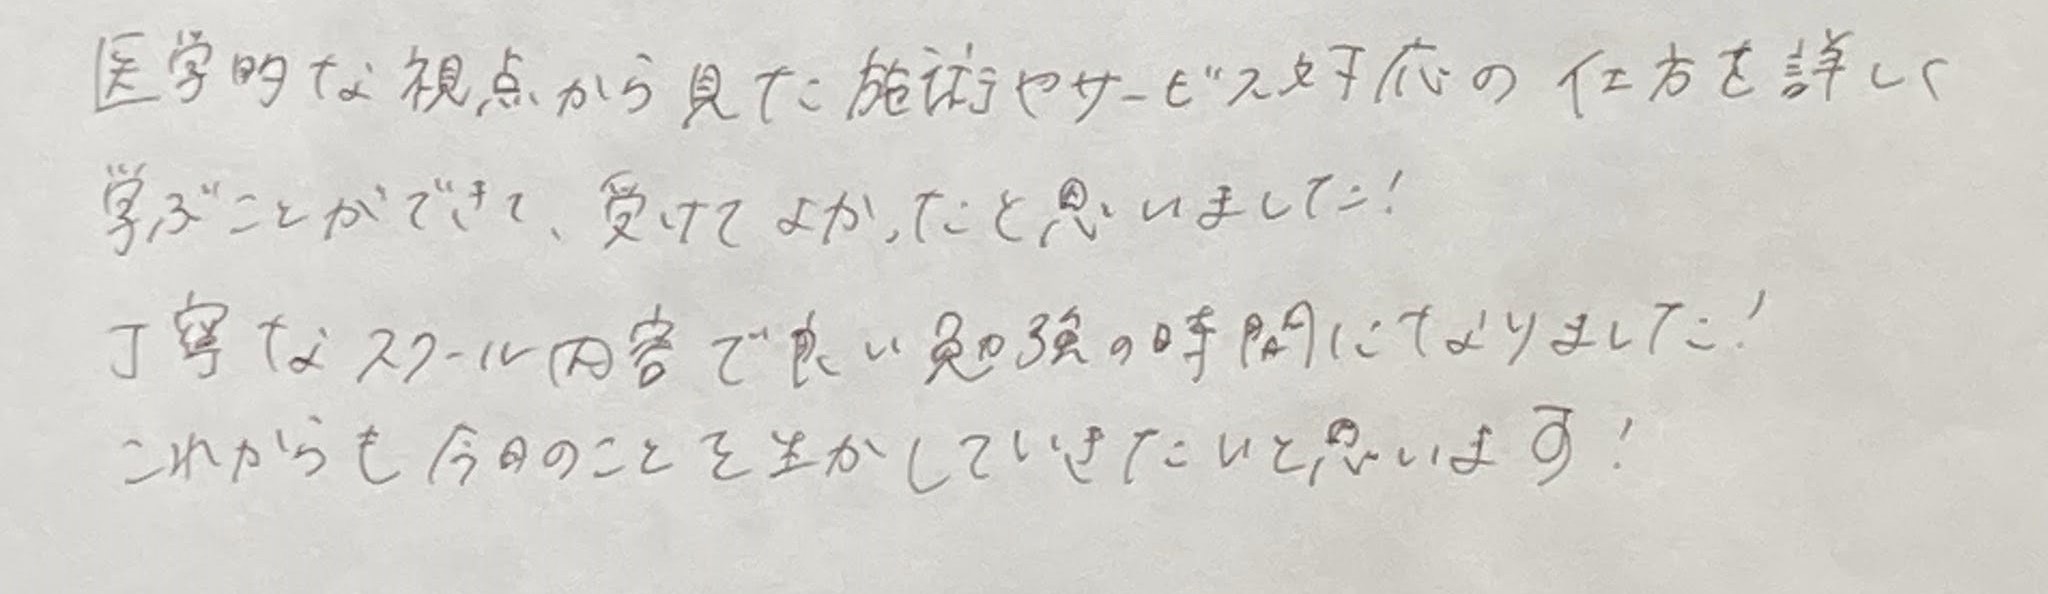 医学的な視点から見た施術やサービス対応の仕方を詳しく
学ぶことができて、受けてよかったと思いました!
丁寧なスクール内容で良い勉強の時間になりました!
これからも今日のことを生かしていきたいと思います!